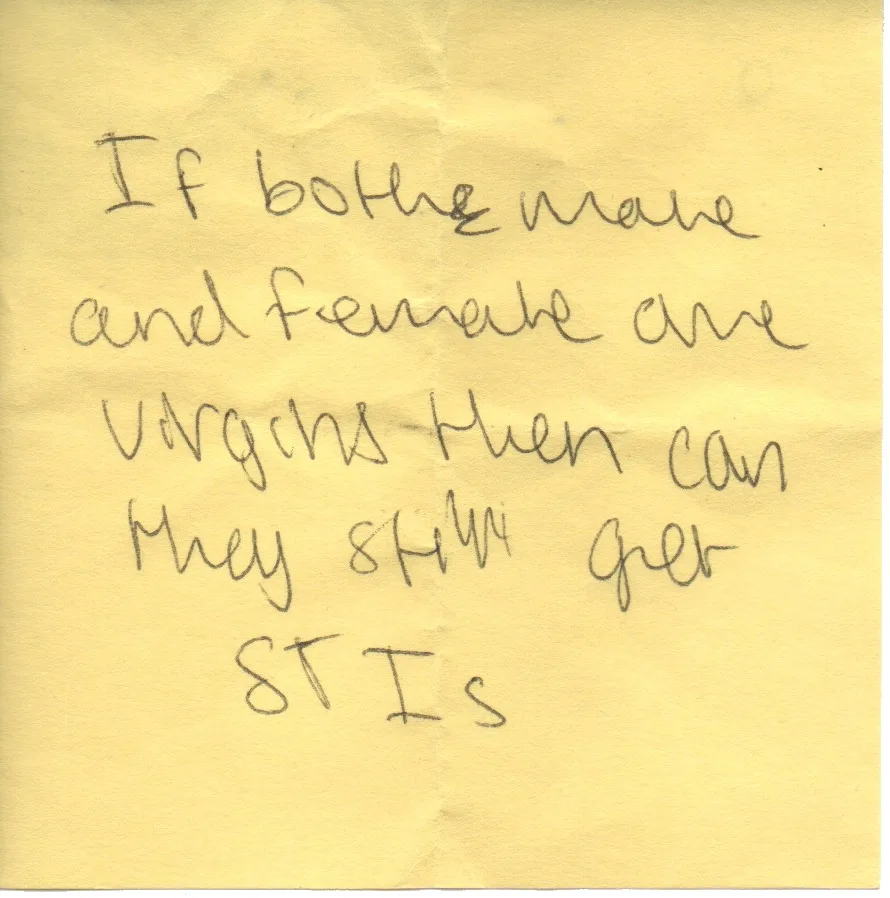 If both male
and female are
virgins then can
they still get
STIs